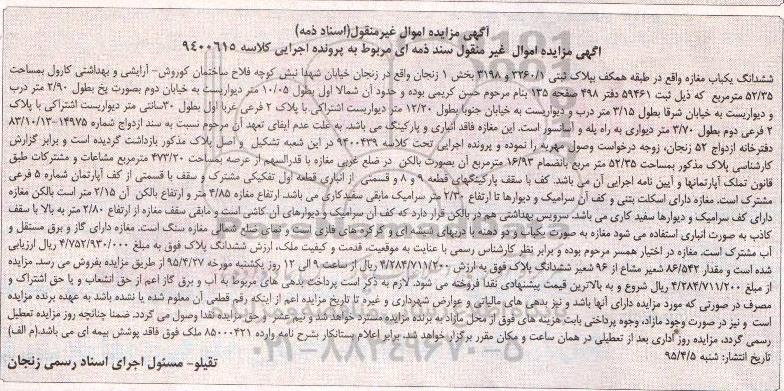 آگهی مزایده اموال غیرمنقول(اسناد ذمه)
آگهی مزایده اموال غیر منقول سند ذمه ای مربوط به پرونده اجرایی کلاسه ۹۴۰۰۶۱۵
ششدانگ یکباب مغازه واقع در طبقه همکف بپلاک ثبتی ۲۲۶۰/۱ و ۳۱۹۸ بخش ۱ زنجان واقع در زنجان خیابان شهدا نبش کوچه فلاح ساختمان کوروش- آرایشی و بهداشتی کارول بمساحت
۵۲/۳۵ مترمربع که ذیل ثبت ۵۹۴۶۱ دفتر ۴۹۸ صفحه ۱۳۵ بنام مرحوم حسن کریمی بوده و حدود آن شمالا اول بطول ۱۰/۰۵ متر دیواریست به خیابان دوم بصورت پخ بطول ۲/۹۰ متر درب
و دیواریست به خیابان شرقا بطول ۳/۱۵ متر درب و دیواریست به خیابان جنوبا بطول ۱۲/۲۰ متر دیواریست اشتراکی با پلاک ۲ فرعی غربا اول بطول ۳۰سانتی متر دیواریست اشتراکی با پلاک
۲ فرعی دوم بطول ۳/۷۰ متر دیواری به راه پله و آسانسور است. این مغازه فاقد انباری و پارکینگ می باشد. به علت عدم ایفای تعهد آن مرحوم نسبت به سند ازدواج شماره ۱۴۹۷۵-۸۳/۱۰/۱۳
دفترخانه ازدواج ۵۲ زنجان، زوجه درخواست وصول مهریه را نموده و پرونده اجرایی تحت کلاسه ۹۴۰۰۴۳۹ در این شعبه تشکیل و اصل پلاک مذکور بازداشت گردیده است و برابر گزارش
کارشناسی پلاک مذکور بمساحت ۵۲/۳۵ متر مربع بانضمام ۱۶/۹۳ مترمربع آن بصورت بالکن در ضلع غربی مغازه با قدرالسهم از عرصه بمساحت ۴۷۳/۲۰ مترمربع مشاعات و مشترکات طبق
قانون تملک آپارتمانها و آیین نامه اجرایی آن می باشد. کف با سقف پارکینگهای قطعه ۹ و ۸ و قسمتی از انباری قطعه اول تفکیکی مشترک و سقف با قسمتی از کف آپارتمان شماره ۵ فرعی
مشترک است. مغازه دارای اسکلت بتنی و کف آن سرامیک و دیوارها تا ارتفاع ۲/۳۰ متر سرامیک مابقی سفیدکاری می باشد. ارتفاع مغازه ۴/۸۵ متر و ارتفاع بالکن آن ۲/۱۵ متر است بالکن مغازه
دارای کف سرامیک و دیوارها سفید کاری می باشد. سرویس بهداشتی هم در بالکن قرار دارد که کف آن سرامیک و دیوارهای آن کاشی است و مابقی سقف مغازه از ارتفاع ۲/۸۰ متر به بالا با سقف
کاذب به صورت انباری استفاده می شود مغازه به صورت یکباب و دو دهنه با دربهای شیشه ای و کرکره های فلزی است و نمای ضلع شمالی مغازه سنگ است. مغازه دارای گاز و برق مستقل و
آب مشترک است. مغازه در اختیار همسر مرحوم بوده و برابر نظر کارشناس رسمی با عنایت به موقعیت، قدمت و کیفیت ملک، ارزش ششدانگ پلاک فوق به مبلغ ۴/۷۵۲/۹۳۰/۰۰۰ ریال ارزیابی
شده است و مقدار ۸۶/۵۴۲ شعیر مشاع از ۹۶ شعیر ششدانگ پلاک فوق به ارزش ۴/۲۸۴/۷۱۱/۲۰۰ ریال از ساعت ۹ الی ۱۲ روز یکشنبه مورخه ۹۵/۴/۲۷ از طریق مزایده بفروش می رسد. مزایده
از مبلغ ۴/۲۸۴/۷۱۱/۲۰۰ ریال شروع و به بالاترین قیمت پیشنهادی نقدا فروخته می شود. لازم به ذکر است پرداخت بدهی های مربوط به آب و برق گاز اعم از حق انشعاب و یا حق اشتراک و
مصرف در صورتی که مورد مزایده دارای آنها باشد و نیز بدهی های مالیاتی و عوارض شهرداری و غیره تا تاریخ مزایده اعم از اینکه رقم قطعی آن معلوم شده یا نشده باشد به عهده برنده مزایده
است و نیز در صورت وجود مازاد، وجوه پرداختی بابت هزینه های فوق از محل مازاد به برنده مزایده مسترد خواهد شد و نیم عشر و حق مزایده نقدا وصول می گردد. ضمنا چنانچه روز مزایده تعطیل
رسمی گردد، مزایده روز آداری بعد از تعطیلی در همان ساعت و مکان مقرر برگزار خواهد شد. برابر اعلام بستانکار بشرح نامه وارده ۸۵۰۰۰۴۲۱ ملک فوق فاقد پوشش بیمه ای می باشد.(م الف)
تاریخ انتشار: شنبه ۹۵/۴/۵
تقیلو- مسئول اجرای اسناد رسمی زنجان
۰۲۱-۸۸۳۴۹۶۷۰-۵